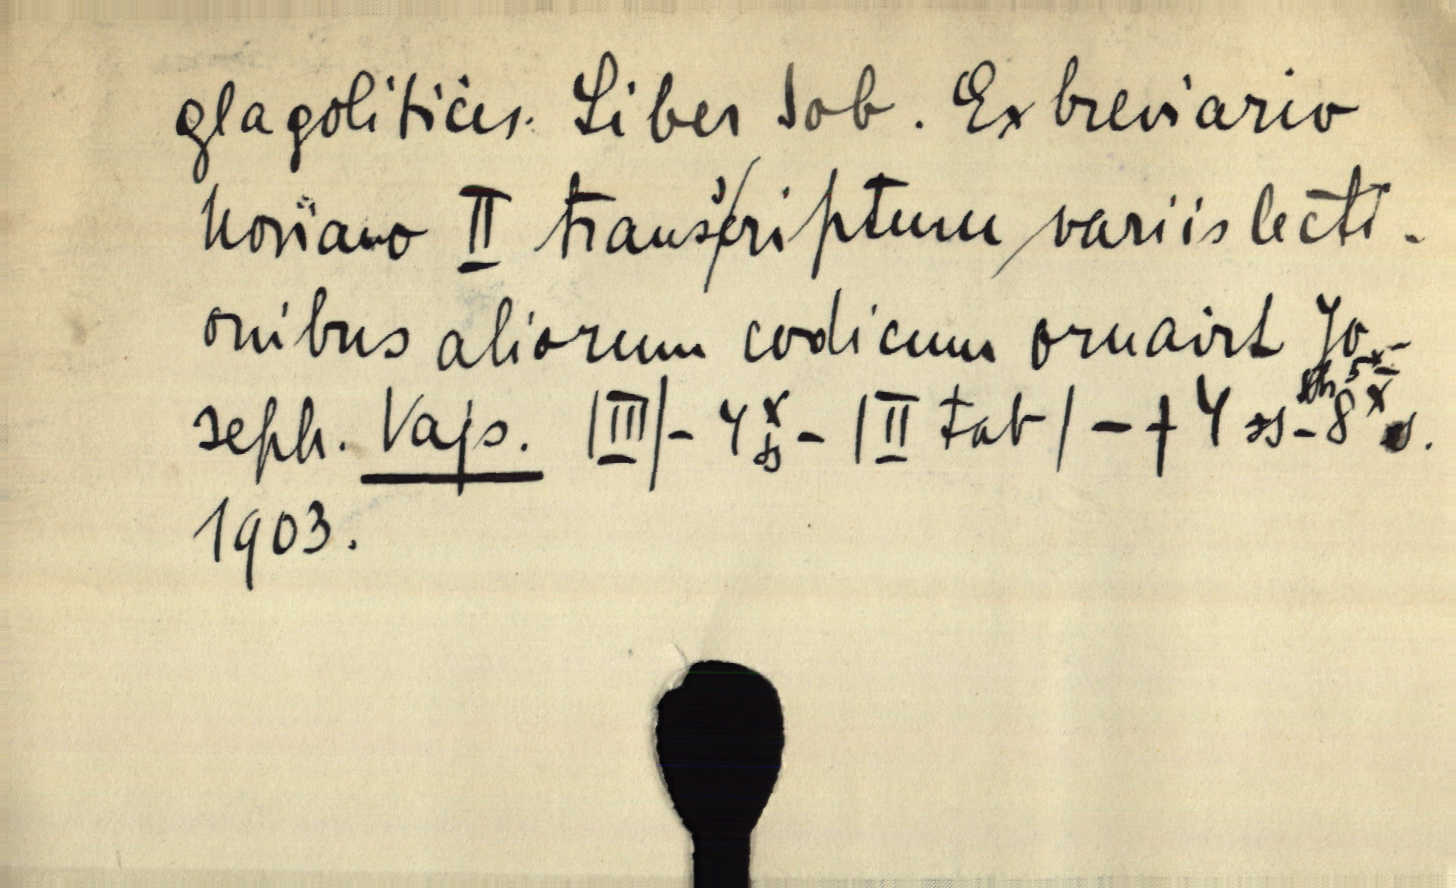 glagoliticis. Liber Iob. Ex breviario
Noviano II transcriptum variis lecti-
onibus aliorum codicum ornavit Jo-
seph. Vajs. |III| - 4 X ss - |II tab| - + 4 ss - 8 X s.
1903.